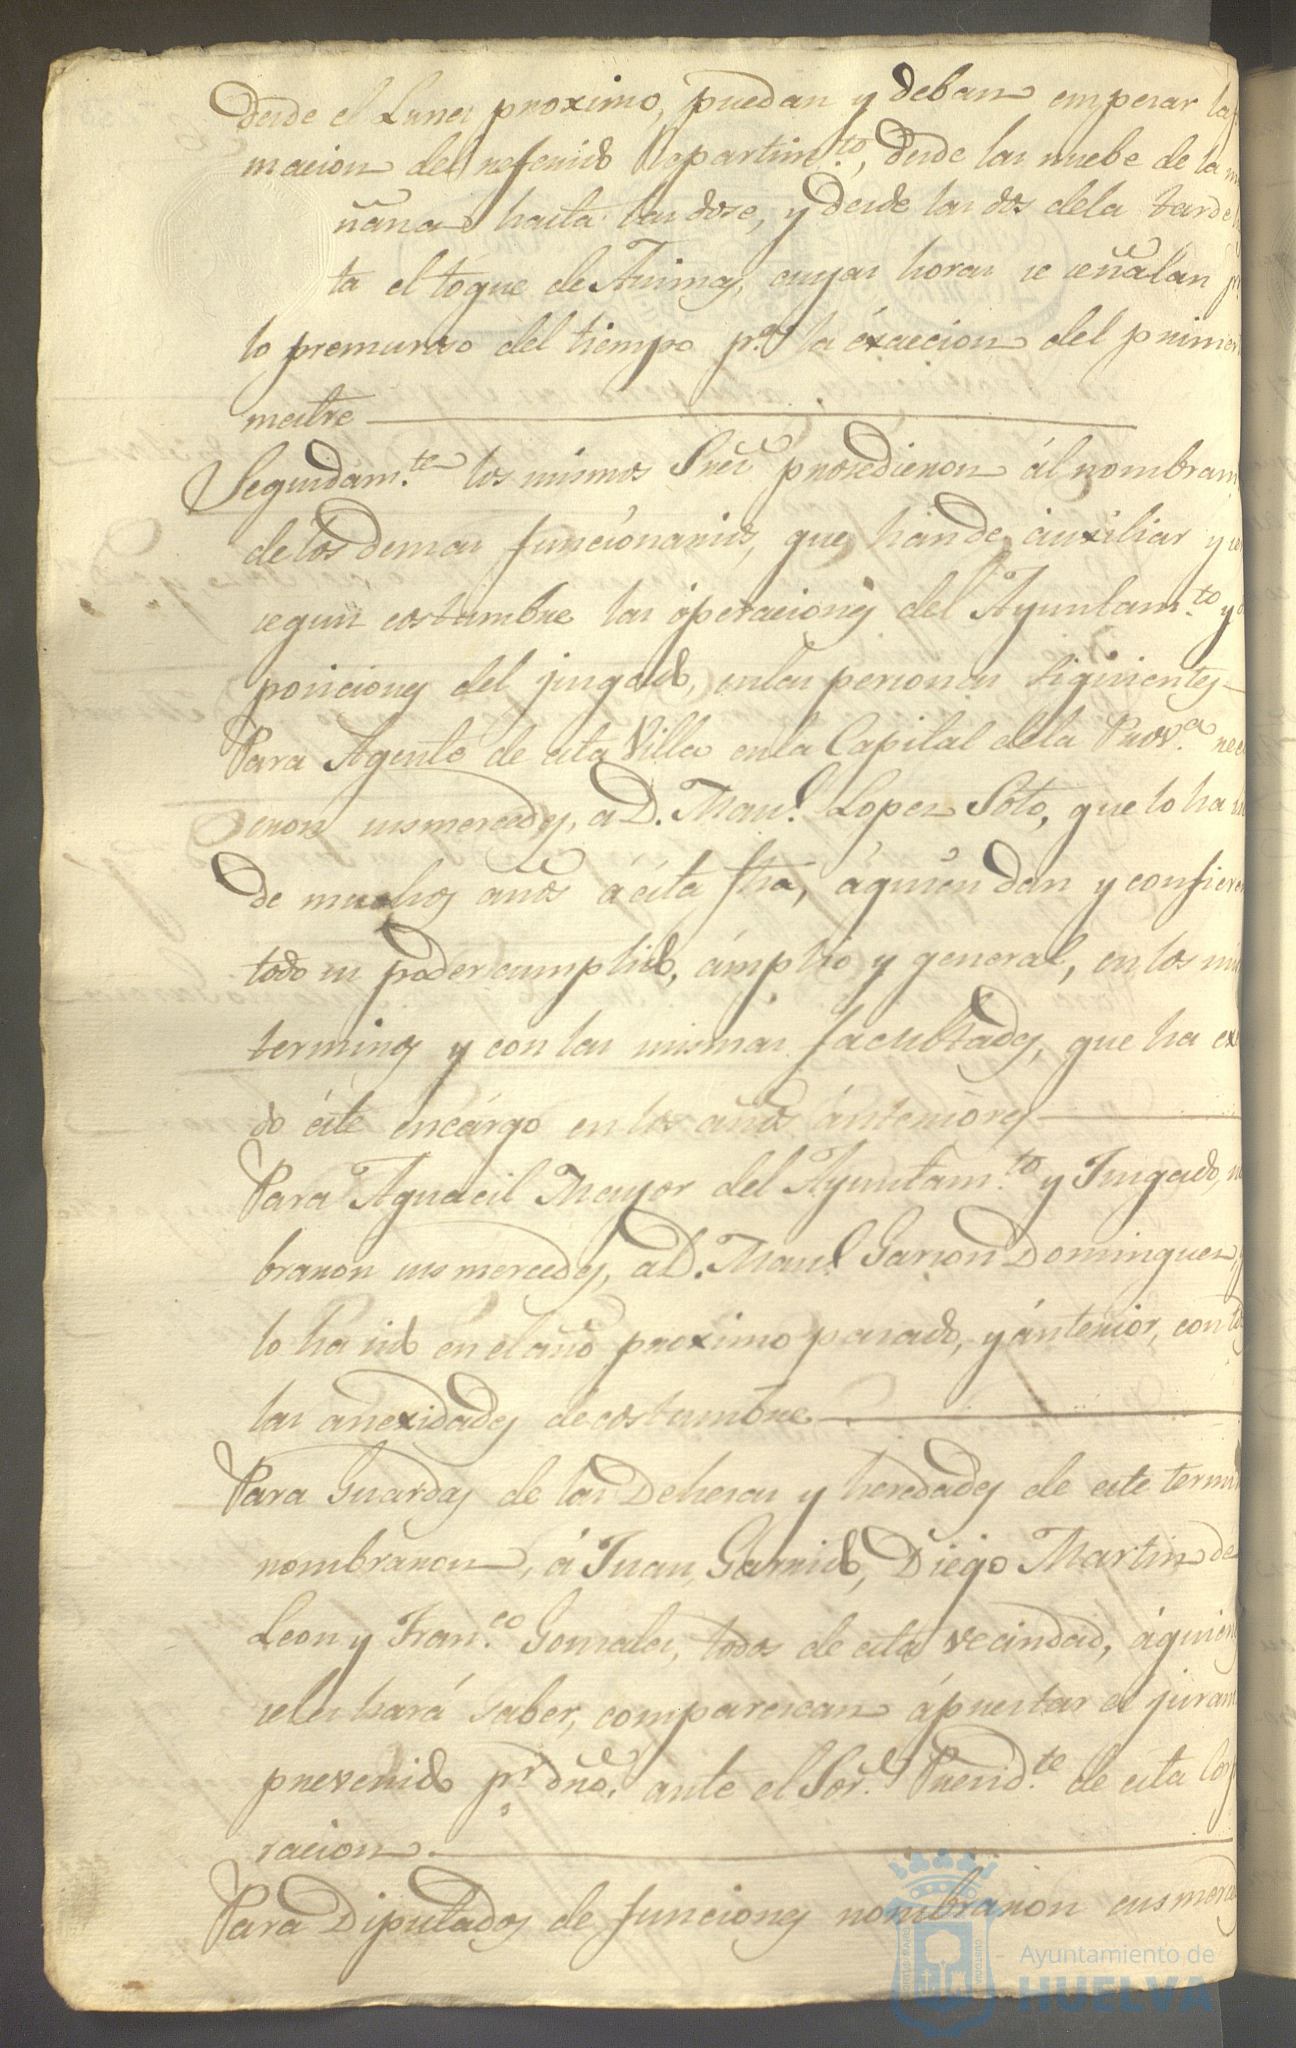 desde el Lunes proximo, puedan y deban empesar la
macion del referido Repartim.to, desde las nuebe de la
ñana hasta las dose, y desde las dos dela tarde
ta el toque de Animas, cuyas horas se señalan
lo premuroso del tiempo p.a la exaccion del primer
mestre
Seguidam.te los mismos Sres prosedieron ál nombram
delos demas funcionarios, que hande auxiliar y
segun costumbre las operaciones del Ayuntam.to y
posiciones del jusgado, enlas personas siginientes
Para Agente de esta Villa enla Capital dela Prov.a
eron susmercedes, a D. Man.l Lopez Soto, que lo ha
de muchos años á esta fha, áquien dan y confieren
todo su poder cumplido, ámplio y general, en los
terminos y con las mismas facultades, que ha
do éste encárgo en los años ánteriores
Para Aguacil Mayor del Ayuntam.to y Jusgado,
braron susmercedes, a D. Man.l Garson Dominguez,
lo ha sido en el año proximo pasado, y ánterior, con
las anexidades de costumbre
Para Guardas de las Dehesas y heredades de este
nombraron, á Juan Garrido, Diego Martin de
Leon y Fran.co Gonzales, todos de esta vecindad, áquienes
seles hará saber, comparescan á prestar el
prevenido p.r dro. ante el Sor. Presid.te de esta
racion.
Para Diputados de funciones nombraron susmerced
Ayuntamiento de
HUELVA